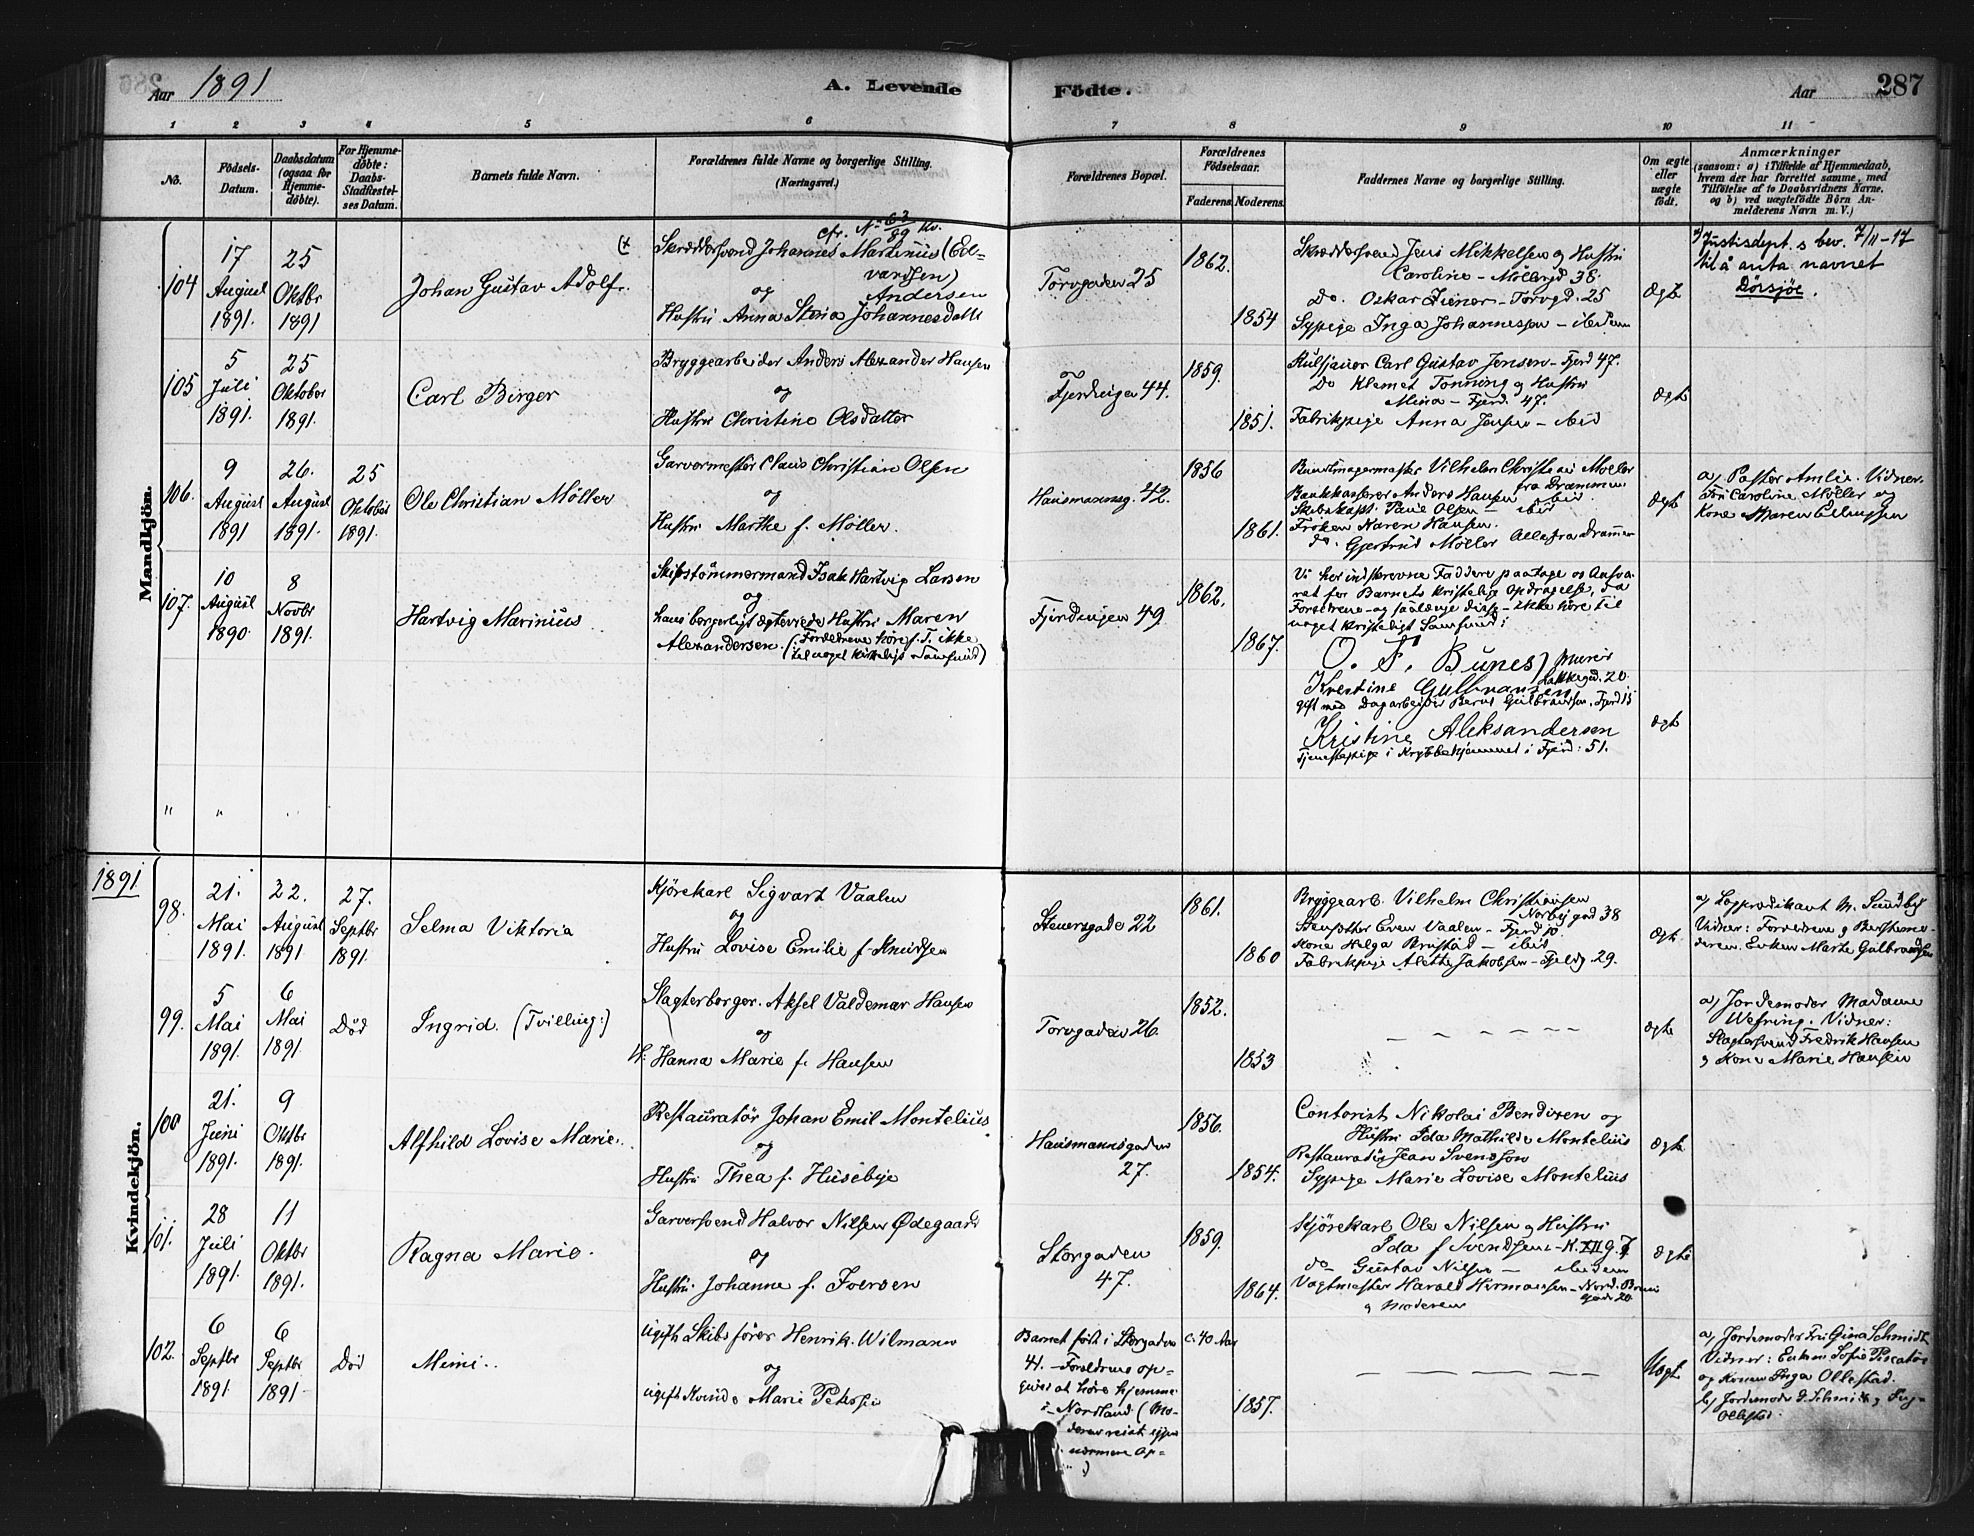 Aar 1891
A. Levende Födte.
Aar
287
1 2 3 4 5 6 7 8 9 10 11
No.
Födsels-Datum.
Daabsdatum (ogsaa for Hjemmedöbte).
For Hjemmedöbte: Daabs-Stadfæstelses Datum.
Barnets fulde Navn.
Forældrenes fulde Navne og borgerlige Stilling. (Næringsvei.)
Forældrenes Bopæl.
Forældrenes Födselsaar.
Faderens Moderens.
Faddernes Navne og borgerlige Stilling.
Om ægte eller uægte födt.
Anmærkninger
(saasom: a) i Tilfælde af Hjemmedaab, hvem der har forrettet samme, med Tilföielse af to Daabsvidners Navne, og b) ved uægtefödte Börn Anmelderens Navn m. V.)
Mandkjön.
104
17 August 1891.
25 Oktbr 1891
Johan Gustav Adolf.
cfr. No 63/89 Kv.
Skræddersvend Johannes Martinius (Edvardsen) Andersen
og
Hustru Anna Stina Johannesdatt
Torvgaden 25
1862.
1854
Skræddersvend Jens Mikkelsen og Hustru
Caroline - Möllergd 38.
Do. Oskar - Torvgd. 25
Sypige Inga Johannessen - ibidem
Ægte
Justisdept.s bev. 7/11-17
til å anta navnet
Dörsjöe.
105
5 Juli 1891.
25 Oktober 1891.
Carl Birger
Bryggearbeider Anders Alexander Hansen
og
Hustru Christine Olsdatter
Fjerdingen 44.
1859.
1851.
Carl Gustav Jensen - Fjerd 47.
Do Klemet Tonning og Hustru
Mina - Fjerd. 47.
Fabrikpige Anna Jensen - ibid
Ægte
106.
9 August 1891
26. August 1891.
25 Oktober 1891.
Ole Christian Möller
Garvermester Claus Christian Olsen
og
Hustru Marthe f. Möller.
Hausmannsg. 42.
1856
1861.
Buntmagermester Vilhelm Christian Möller
fra Drammen
Bankkasserer Anders Hansen ibid.
Skibskapt. Paul Olsen - ibid
Fröken Karen Hansen.
do. Gjertrud Möller Alle fra Drammen
Ægte
a) Pastor Amlie. Vidner.
Fru Caroline Möller og
Kone Maren Ellingsen
107.
10 August 1890
8 Novbr 1891.
Hartvig Marinius
Skibstömmermand Isak Hartvig Larsen
og
hans borgerligt ægteviede Hustru Maren
Alexandersen. (Forældrene höre f. T. ikke
til noget kristeligt Samfund)
Fjerdingen 49
1862.
1867.
Vi her indskrevne Faddere paatage os Ansvaret for Barnets kristelige Opdragelse, da
Forældrene - og saalænge disse - ikke höre til
noget kristeligt Samfund:
O. F. Bunes, Murer
Lakkegd. 20
Krestine Gulbransen
gift med Dagarbeider Bernt Gulbrandsen. Fjerd 15
Kristine Aleksandersen
Tjenestepige i Krybbehjemmet i Fjerd: 51.
Ægte
" " "
1891
Kvindekjön.
98.
21. Mai 1891.
22. August 1891
27. Septbr 1891.
Selma Viktoria
Kjörekarl Sigvart Vaalen
og
Hustru Lovise Emilie f. Knudsen
Steuersgade 22
1861.
1860
Bryggearb. Vilhelm Christiansen
Norbygad 38
Even Vaalen - Fjerd 10.
Kone Helga Brustad - ibid
Fabrikpige Alette Jakobsen - Fjeldg 29.
Ægte
a) Lægprædikant M. Sundby
Vidner: Forældrene og Bestemoderen Enken Marte Gulbrandsen
99.
5 Mai 1891.
6 Mai 1891
Död
Ingrid. (Tvilling:)
Slagterborger. Aksel Valdemar Hansen
og
H: Hanna Marie f. Hansen
Torvgaden 26
1852.
1853
— — — — —
Ægte
a) Jordemoder Madame
Wefring. Vidner:
Slagtersvend Fredrik Hansen
og Kone Marie Hansen
100
21. Juni 1891.
9 Oktbr 1891.
Alfhild Lovise Marie.
Restauratör Johan Emil Montelius
og
Hustru Thea f. Huseby
Hausmannsgaden
27.
1856.
1854.
Contorist Nikolai Bendixen og
Hustru Ida Mathilde Montelius
Restauratör Jean Svensson
Sypige Marie Lovise Montelius
Ægte
101.
28 Juli 1891.
11 Oktbr 1891.
Ragna Marie.
Garversvend Halvor Nilsen Ödegaard
og
Hustru Johanne f. Iversen
Storgaden
47.
1859.
1864.
Kjörekarl Ole Nilsen og Hustru
Ida f Svendsen - K. XII g. 7
do Gustav Nilsen — ibidem
Vagtmester Harald Hermansen - Nord. Brun
gade 20
og Moderen
Ægte
102.
6 Septbr 1891
6 Septbr 1891
Död
Mimi.
ugift Skibsförer Henrik Wilmann
og
ugift Kvinde Marie Petersen
Barnet födt i Storgaden
41. - Forældrene opgives at höre hjemme
i Nordland (Moderen reist igjen
nærmere op-
)
c. 40 Aar
1857.
— — — — — —
Uægte
a) Jordemoder Fru Gina Schmidt
Vidner: Enken Sofie Piscator
og Konen Inga Ollestad.
b) Jordemoder G. Schmidt og Inga
Ollestad.